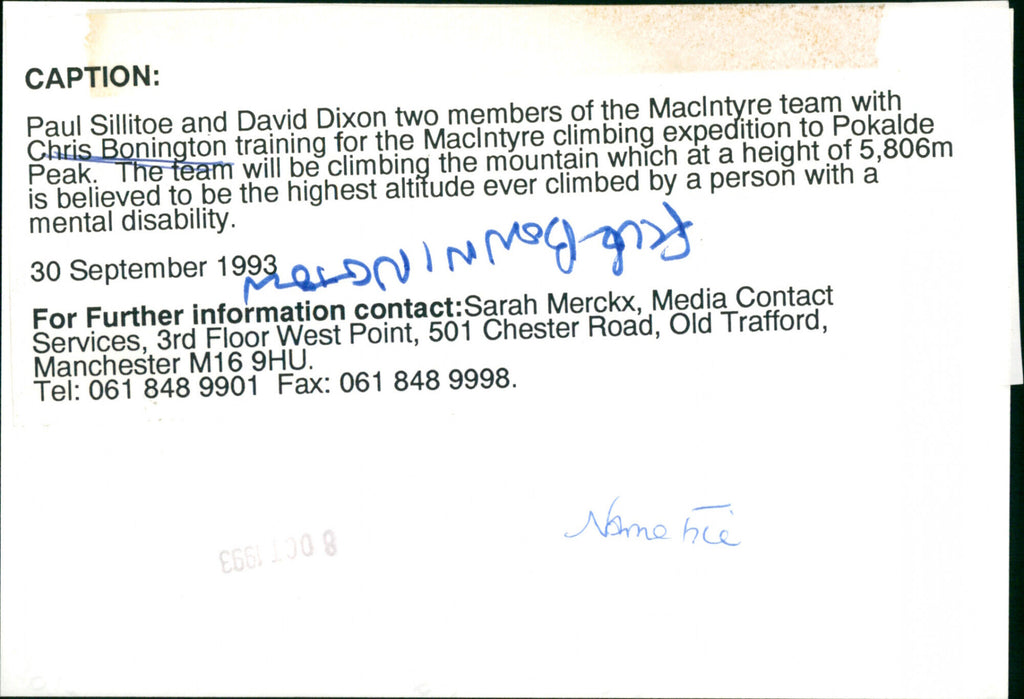 CAPTION:
Paul Sillitoe and David Dixon two members of the MacIntyre team with
Chris Bonington training for the MacIntyre climbing expedition to Pokalde
Peak. The team will be climbing the mountain which at a height of 5,806m
is believed to be the highest altitude ever climbed by a person with a
mental disability.
30 September 1993
For Further information contact:Sarah Merckx, Media Contact
Services, 3rd Floor West Point, 501 Chester Road, Old Trafford,
Manchester M16 9HU.
Tel: 061 848 9901 Fax: 061 848 9998.
Name
8 OCT 1993